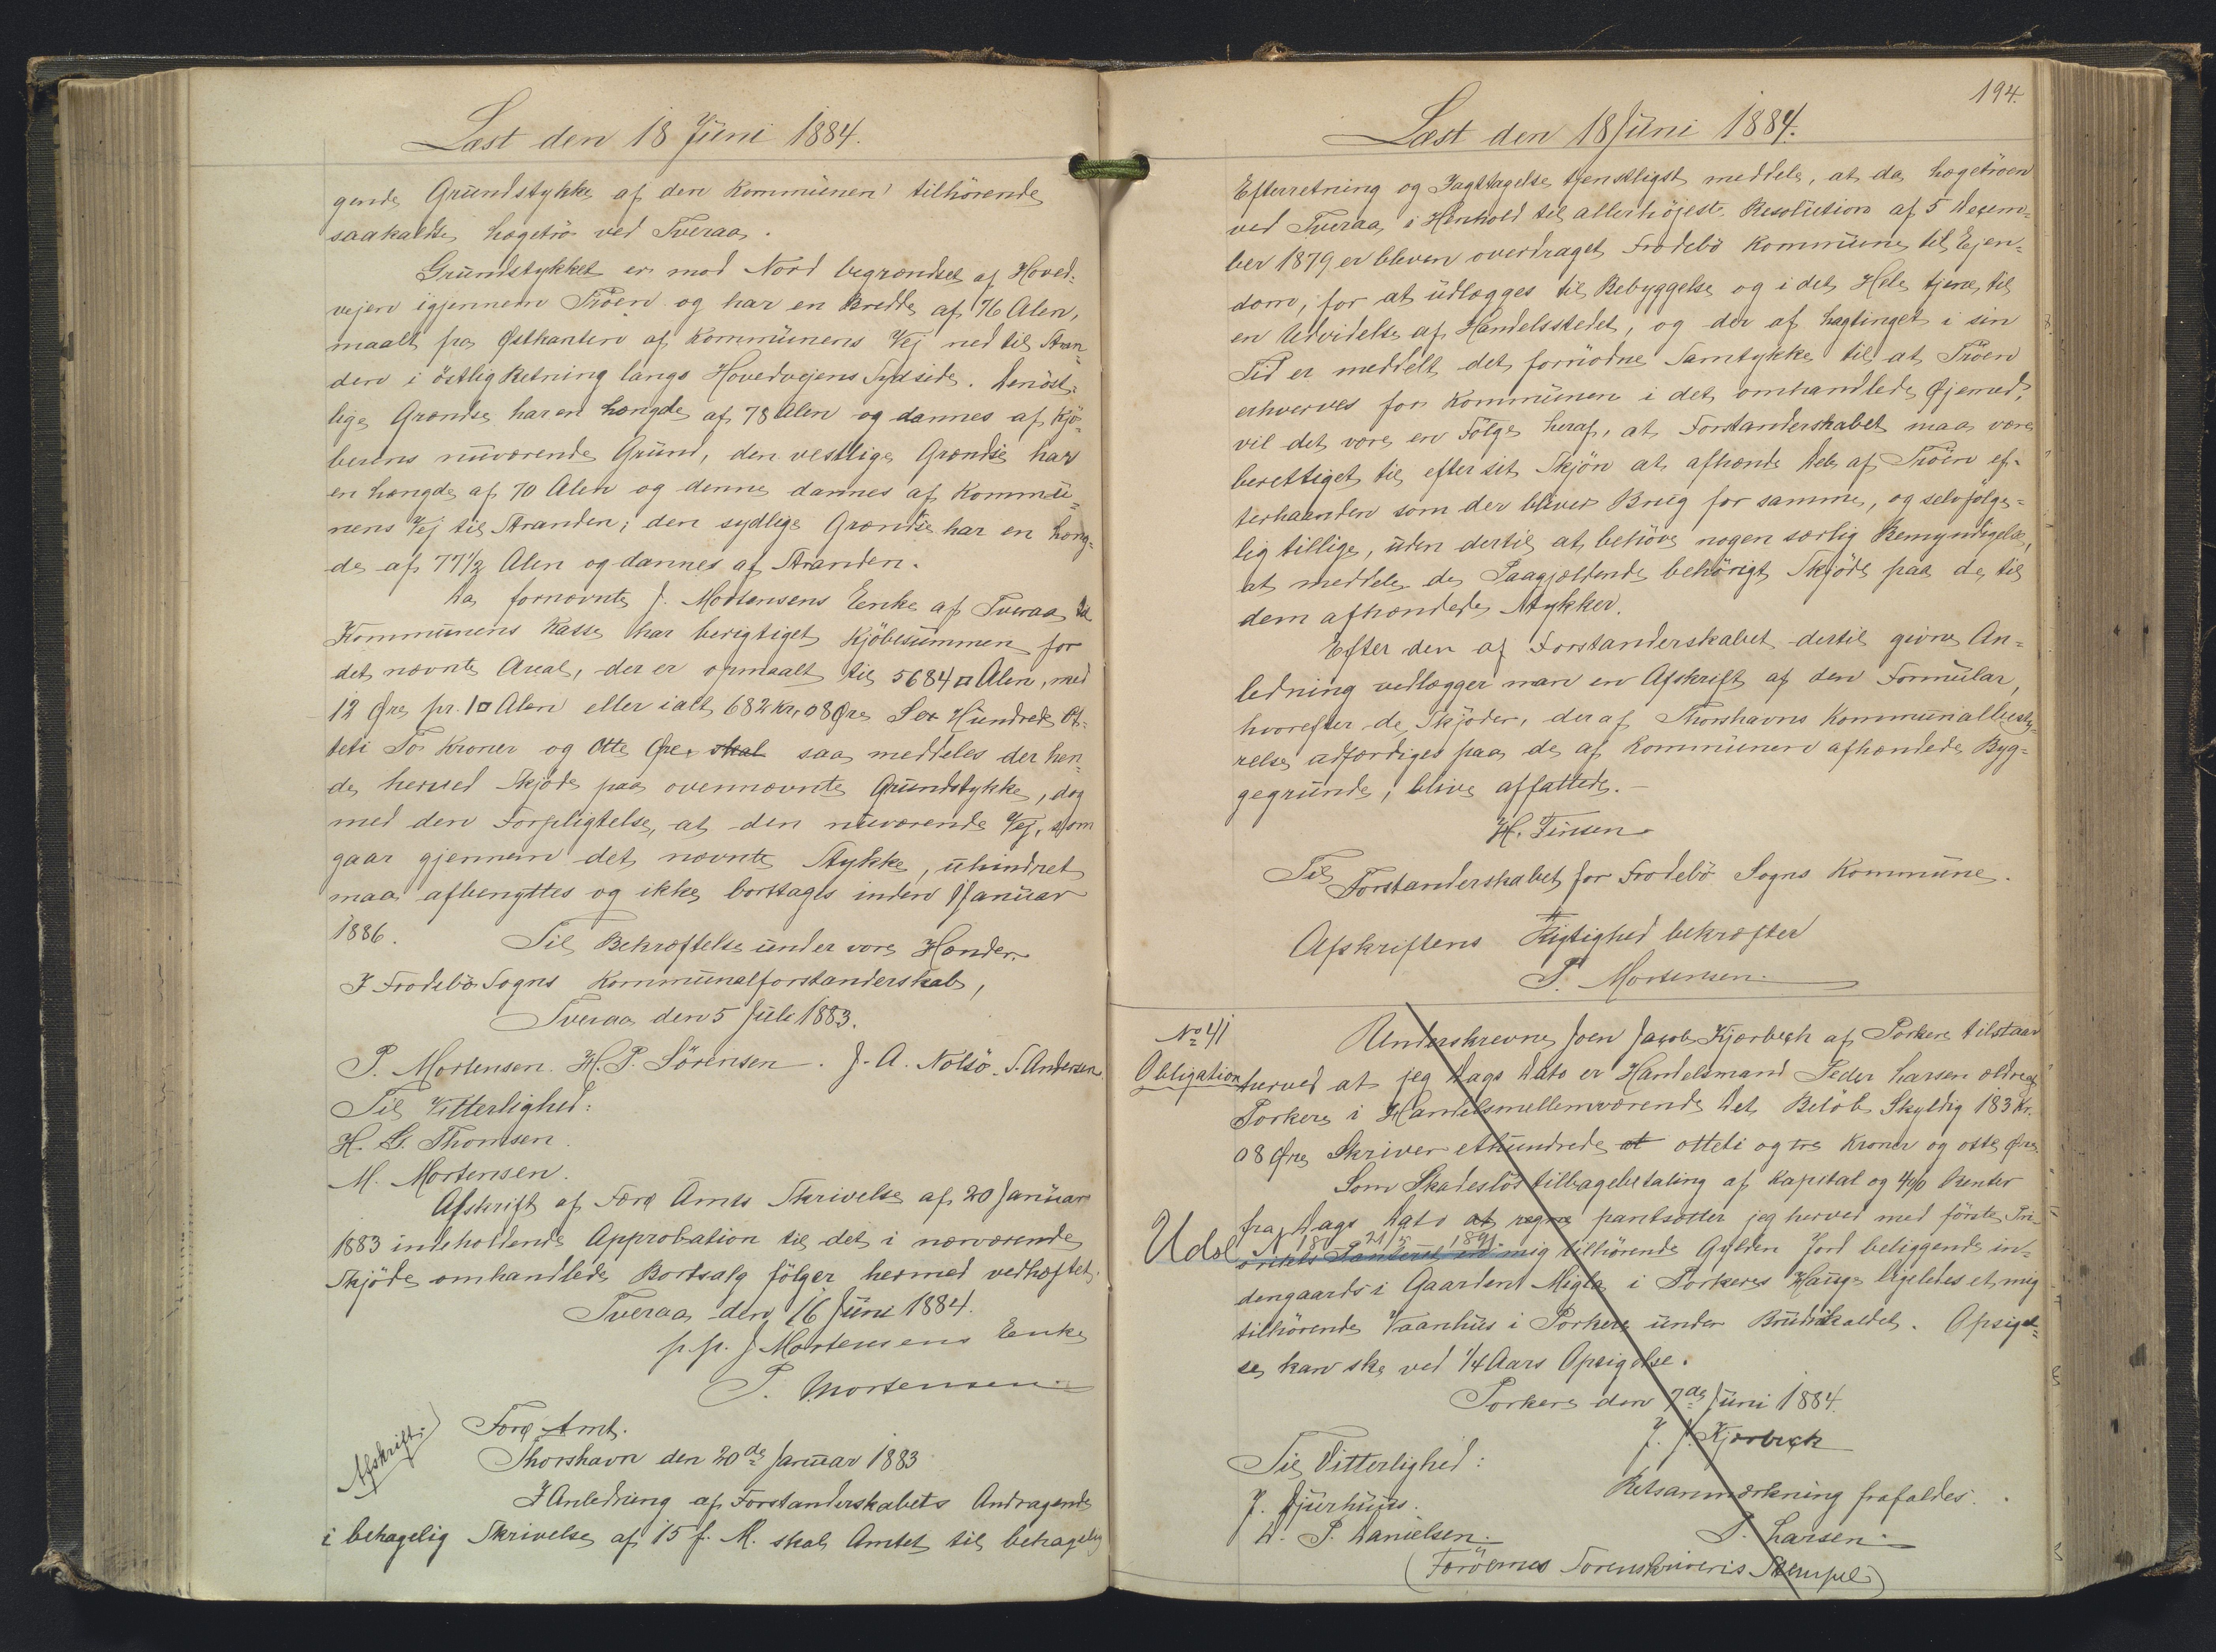 Læst den 18 Juni 1884.
gende Grundstykke af den Kommunen tilhørende
saakaldte Lægetrö ved Tveraa.
Grundstykket er mod Nord begrændset af Hoved-
vejen igjennem Tröen og har en Bredde af 76 Alen,
maalt fra Østkanten af Kommunens Vej ned til Stran-
den i östlig Retning langs Hovedvejens Sydside. Den öst-
lige Grændse har en Længde af 78 Alen og dannes af Kjö-
berens nuværende Grund, den vestlige Grændse har
en Længde af 70 Alen og denne dannes af Kommu-
nens Vej til Stranden; den sydlige Grændse har en Læng-
de af 77 1/2 Alen og dannes af Stranden.
Da fornævnte J. Mortensens Enke af Tveraa til
Kommunens Kasse har berigtiget Kjöbesummen for
det nævnte Areal, der er opmaalt til 5684 □ Alen, med
12 Øre pr. 1 □ Alen eller ialt 682 Kr. 08 Øre Sex Hundrede Ot-
teti To Kroner og Otte Øre, skal saa meddeles der hen-
de herved Skjöde paa ovennævnte Grundstykke, dog
med den Forpligtelse, at den nuværende Vej, som
gaar gjennem det nævnte Stykke, uhindret
maa afbenyttes og ikke borttages inden 1 Januar
1886.
Til Bekræftelse under vore Hænder.
I Frodebö Sogns Kommunalforstanderskab,
Tveraa den 5 Juli 1883.
P. Mortensen. H. P. Sörensen. J. A. Nolsö. S. Andersen.
Til Vitterlighed:
H. G. Thomsen.
M. Mortensen.
Afskrift af Færø Amts Skrivelse af 20 Januar
1883 indeholdende Approbation til det i nærværende
Skjöde omhandlede Bortsalg fölger hermed vedhæftet.
Tveraa den 16 Juni 1884.
p.p. J Mortensens Enke
P. Mortensen.
Afskrift.)
Færø Amt.
Thorshavn den 20de Januar 1883
I Anledning af Forstanderskabets Andragende
i behagelig Skrivelse af 15 f. M. skal Amtet til behagelig
194.
Læst den 18 Juni 1884.
Efterretning og Iagttagelse tjenstligst meddele, at da Lægetröen
ved Tveraa i Henhold til allerhöjeste Resolution af 5 Decem-
ber 1879 er bleven overdraget Frodebö Kommune til Ejen-
dom, for at udlægges til Bebyggelse og i det Hele tjene til
en Udvidelse af Handelsstedet, og der af Lagtinget i sin
Tid er meddelt det fornödne Samtykke til at Tröen
erhverves for Kommunen i det omhandlede Øjemed,
vil det være en Fölge heraf, at Forstanderskabet maa være
berettiget til efter sit Skjön at afhænde Dele af Tröen ef-
terhaanden som der bliver Brug for samme, og selvfölge-
lig tillige, uden dertil at behöve nogen særlig Bemyndigelse,
at meddele de Paagjældende behörigt Skjöde paa de til
dem afhændede Stykker.
Efter den af Forstanderskabet dertil givne An-
ledning vedlægger man en Afskrift af den Formular,
hvorefter de Skjöder, der af Thorshavns Kommunalbesty-
relse udfærdiges paa de af Kommunen afhændede Byg-
gegrunde, blive affattede.
H. Finsen.
Til Forstanderskabet for Frodebö Sogns Kommune.
Afskriftens Rigtighed bekræfter
P. Mortensen.
No 41
Obligation
Underskrevne Joen Jacob Kjærbech af Porkere tilstaar
herved at jeg Dags Dato er Handelsmand Peder Larsen ældre af
Porkere i Handelsmellemværende det Belöb Skyldig 183 Kr.
08 Øre Skriver ethundrede at otteti og tre Kroner og otte Øre.
Som Skadeslös tilbagebetaling af Kapital og 4% Renter
fra Dags Dato at regne pantsætter jeg herved med förste Pri-
Udsl. N 180 21/5 1891.
oritets Panteret en mig tilhörende Gylden Jord beliggende in-
dengaards i Gaarden Migla i Porkeres Hauge ligeledes et mig
tilhörende Vaanhus i Porkere under Brudrikaldet. Opsigel-
se kan ske ved 1/4 Aars Opsigelse.
Porkere den 7de Juni 1884.
J. J. Kjærbech
Til Vitterlighed:
J. Djurhuus.
D. P. Danielsen.
Retsanmærkning frafaldes.
P. Larsen.
(Færöernes Sorenskriveris Stempel)